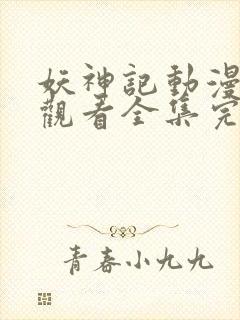 妖神記動漫
觀看全集完
青春小九九